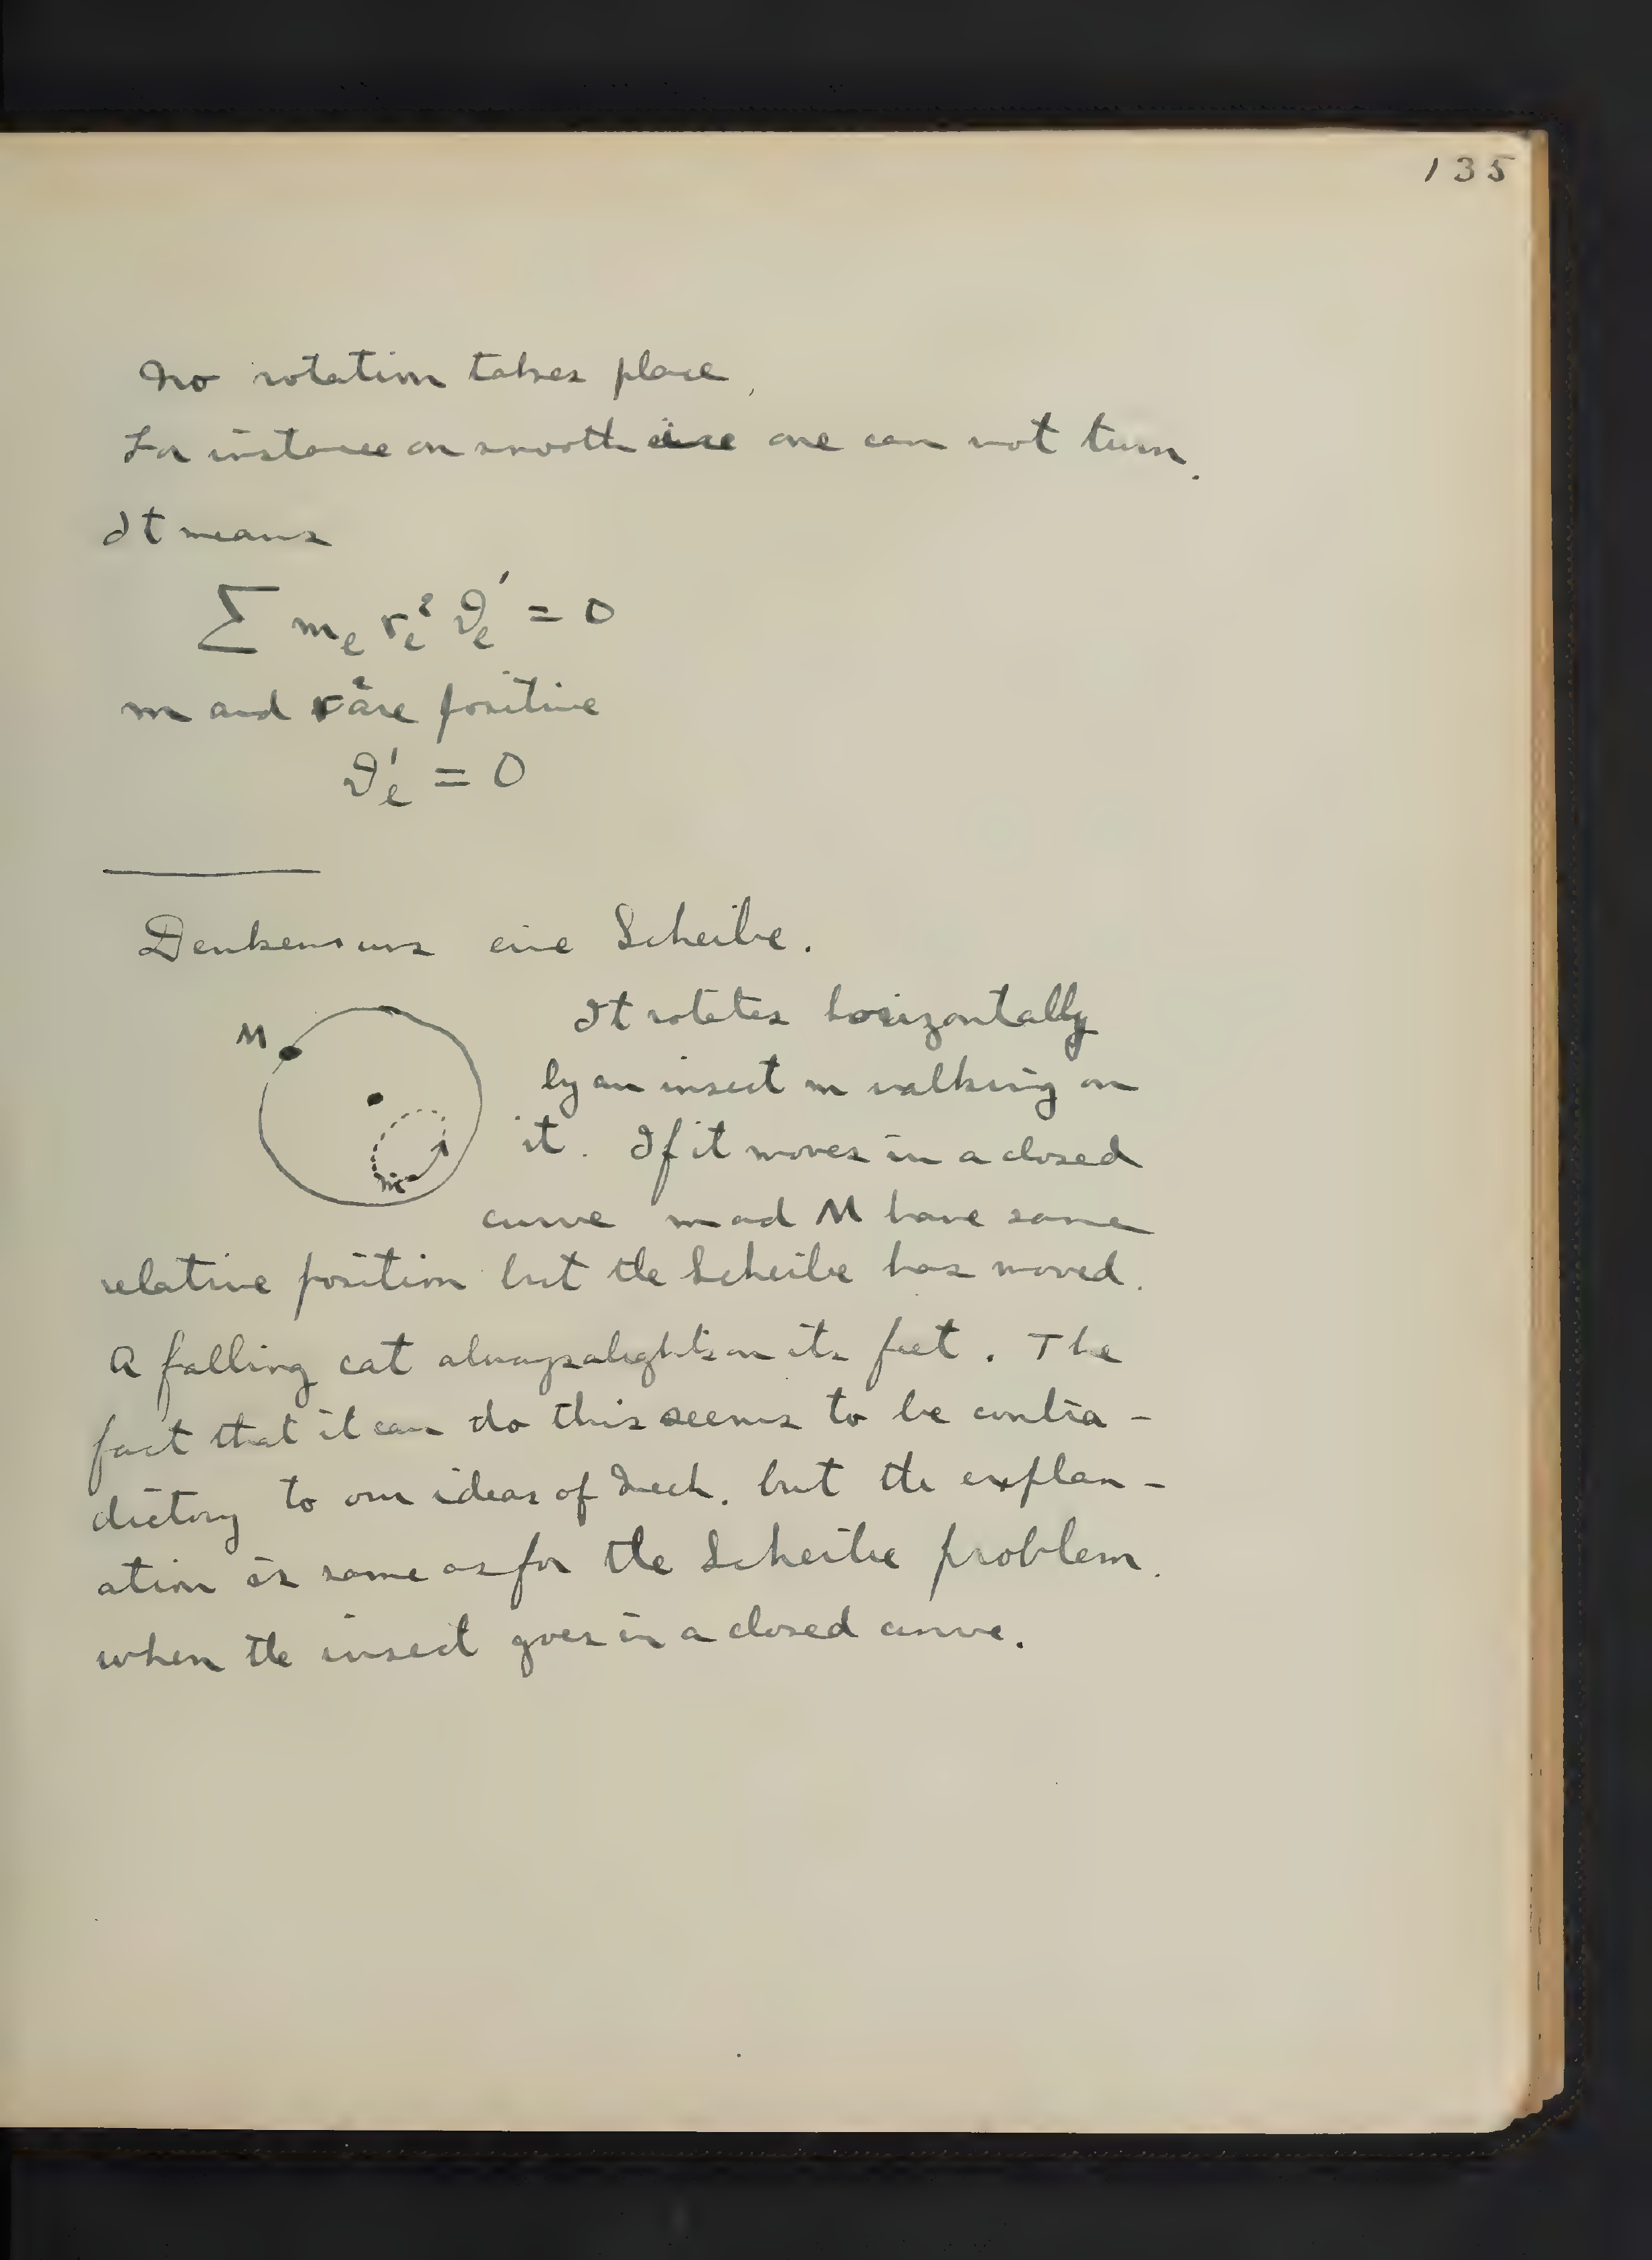 135
no rotation takes place,
For instance on smooth ice one can not turn.
It means
∑ mₑ rₑ² ϑₑ′ = 0
m and r² are positive
ϑ′ₑ = 0
Denken uns eine Scheibe.
It rotates horizontally
M
by an insect m walking on
it. If it moves in a closed
m
curve m and M have same
relative position but the Scheibe has moved.
A falling cat always alights on its feet. The
fact that it can do this seems to be contra-
dictory to our ideas of Mech. but the explan-
ation is same as for the Scheibe problem.
when the insect goes in a closed curve.